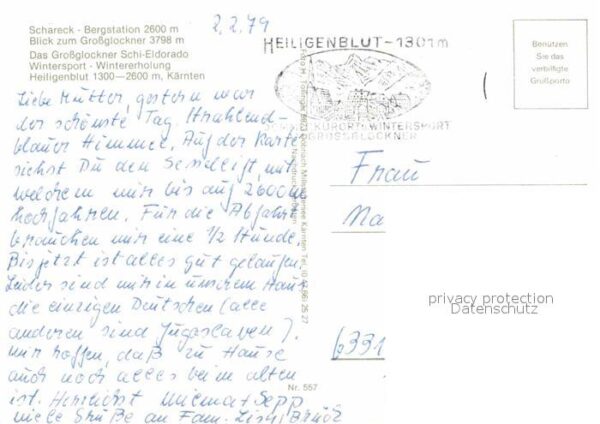 Schareck - Bergstation 2600 m
Blick zum Großglockner 3798 m
Das Großglockner Schi-Eldorado
Wintersport - Wintererholung
Heiligenblut 1300—2600 m, Kärnten
2.2.79
HEILIGENBLUT-1301m
KURORT WINTERSPORT
GROSSGLOCKNER
Benützen
Sie das
verbilligte
Grußporto
Liebe Mutter, gestern war
der schönste Tag. Strahlend-
blauer Himmel. Auf der Karte
siehst Du den Sessellift, mit
welchem wir bis auf 2600 m
hochfahren. Für die Abfahrt
brauchen wir eine 1/2 Stunde.
Bis jetzt ist alles gut gelaufen.
Leider sind wir in unserem Haus
die einzigen Deutschen (alle
anderen sind Jugoslaven).
Wir hoffen, daß zu Hause
auch noch alles beim alten
ist. Herzlichst Sepp
viele Grüße an Fam.
Frau
Na
6331
Nr. 557
privacy protection
Datenschutz